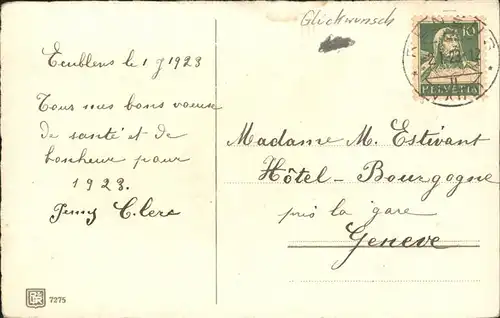 Glückwunsch
10
HELVETIA
Ecublens le 1 J 1923
Tous mes bons voeux
de santé et de
bonheur pour
1923.
Jenny Clerc
Madame M. Estivant
Hôtel - Bourgogne
près la gare
Genève
7275